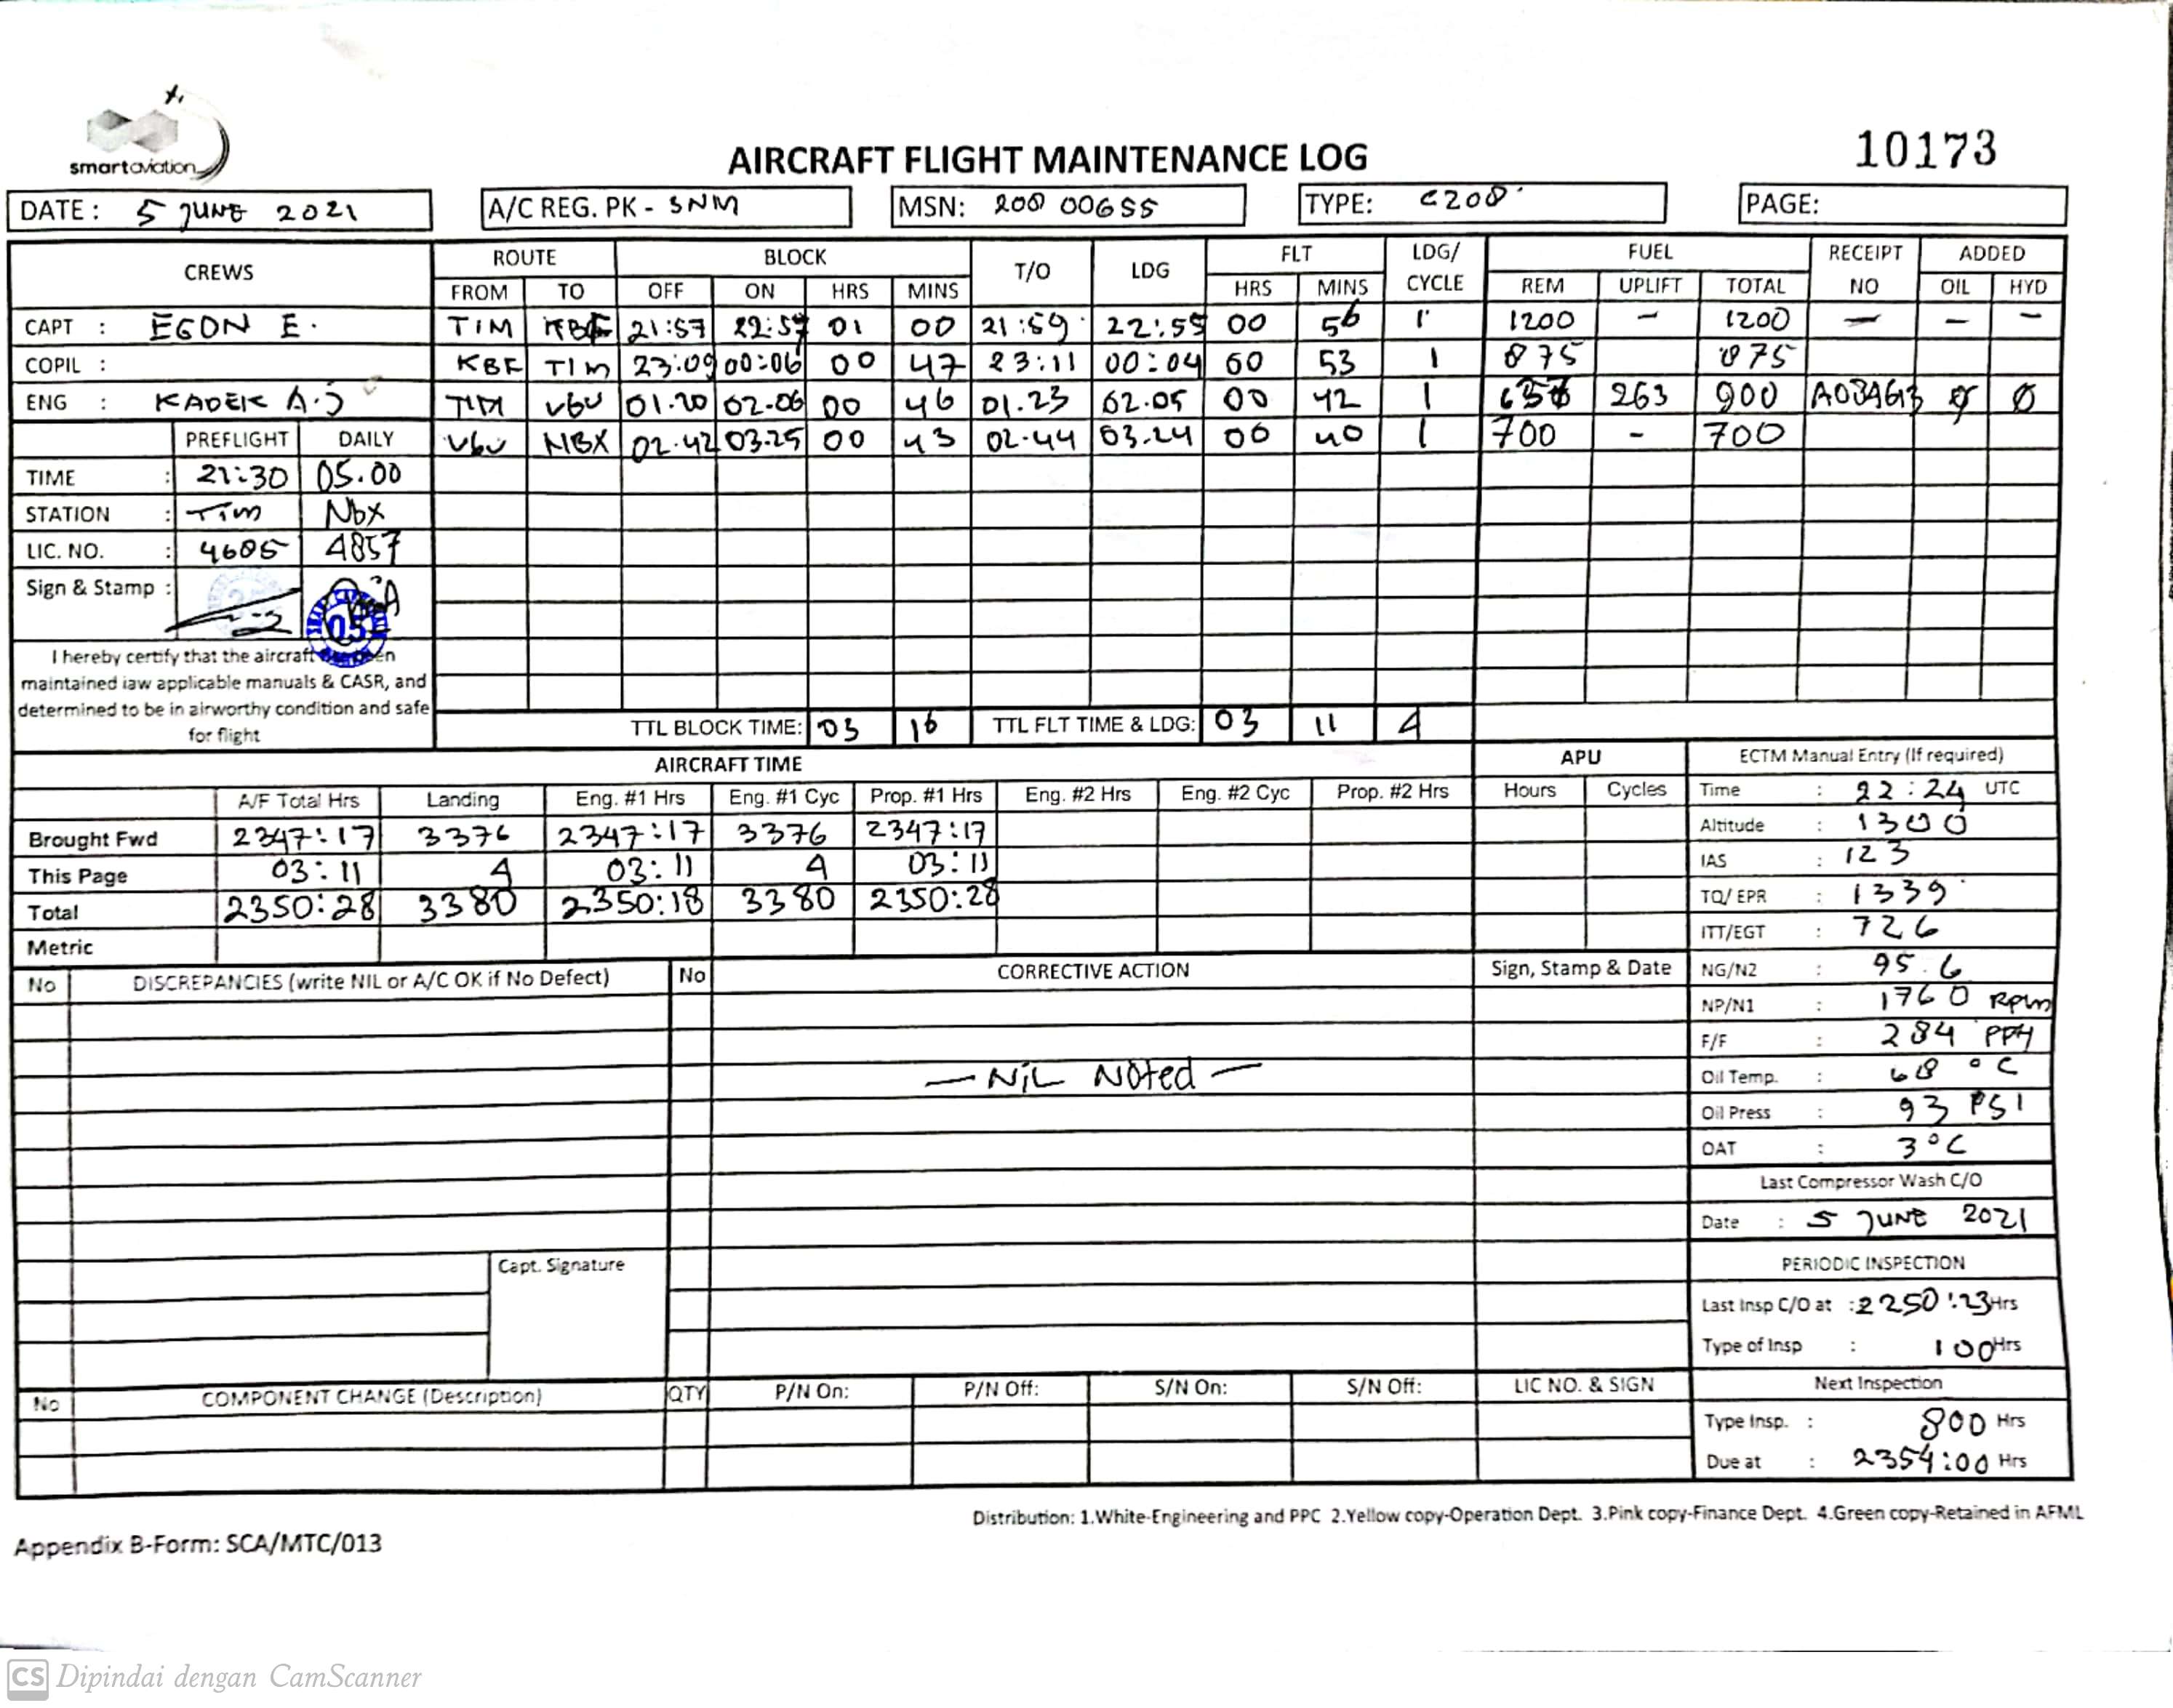 smartaviation
AIRCRAFT FLIGHT MAINTENANCE LOG
10173
DATE : 5 JUNE 2021 A/C REG. PK - SNM MSN: 208 00655 TYPE: C208 PAGE:
CREWS ROUTE BLOCK T/O LDG FLT LDG/ CYCLE FUEL RECEIPT NO ADDED
FROM TO OFF ON HRS MINS HRS MINS REM UPLIFT TOTAL OIL HYD
CAPT : EGON E. TIM KBF 21:57 22:57 01 00 21:59 22:55 00 56 1 1200 - 1200 - - -
COPIL : KBF TIM 23:09 00:06 00 47 23:11 00:04 00 53 1 875 875
ENG : KADEK A.J TIM VBU 01.20 02.06 00 46 01.23 02.05 00 42 1 263 900 Ø Ø
PREFLIGHT DAILY VBU NBX 02.42 03.25 00 43 02.44 03.24 00 40 1 700 - 700
TIME : 21:30 05.00
STATION : TIM Nbx
LIC. NO. : 4605 4857
Sign & Stamp :
05
I hereby certify that the aircraft has been
maintained iaw applicable manuals & CASR, and
determined to be in airworthy condition and safe
for flight
TTL BLOCK TIME: 03 16 TTL FLT TIME & LDG: 03 11 4
AIRCRAFT TIME APU ECTM Manual Entry (If required)
A/F Total Hrs Landing Eng. #1 Hrs Eng. #1 Cyc Prop. #1 Hrs Eng. #2 Hrs Eng. #2 Cyc Prop. #2 Hrs Hours Cycles Time : 22:24 UTC
Brought Fwd 2347:17 3376 2347:17 3376 2347:17 Altitude : 1300
This Page 03:11 4 03:11 4 03:11 IAS : 123
Total 2350:28 3380 2350:18 3380 2350:28 TQ/ EPR : 1339
Metric ITT/EGT : 726
No DISCREPANCIES (write NIL or A/C OK if No Defect) No CORRECTIVE ACTION Sign, Stamp & Date NG/N2 : 95.6
NP/N1 : 1760 Rpm
F/F : 284 PPH
— NiL Noted — Oil Temp. : 68 °C
Oil Press : 93 PSI
OAT : 3°C
Last Compressor Wash C/O
Date : 5 JUNE 2021
Capt. Signature PERIODIC INSPECTION
Last Insp C/O at : 2250:23 Hrs
Type of Insp : 100 Hrs
No COMPONENT CHANGE (Description) QTY P/N On: P/N Off: S/N On: S/N Off: LIC NO. & SIGN Next Inspection
Type Insp. : 800 Hrs
Due at : 2354:00 Hrs
Distribution: 1.White-Engineering and PPC 2.Yellow copy-Operation Dept. 3.Pink copy-Finance Dept. 4.Green copy-Retained in AFML
Appendix B-Form: SCA/MTC/013
CS Dipindai dengan CamScanner